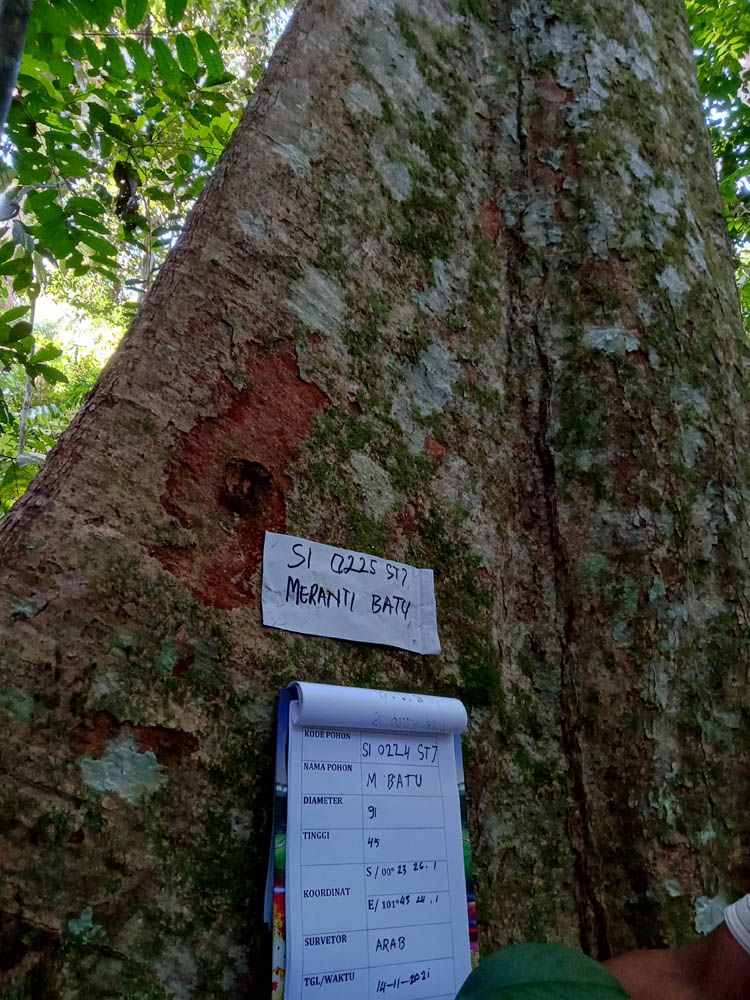 SI 0225 ST7
MERANTI BATU
KODE POHON SI 0224 ST7
NAMA POHON M BATU
DIAMETER 91
TINGGI 45
KOORDINAT S/00° 23 26.1
E/101°43 24.1
SURVETOR ARAB
TGL/WAKTU 14-11-2021